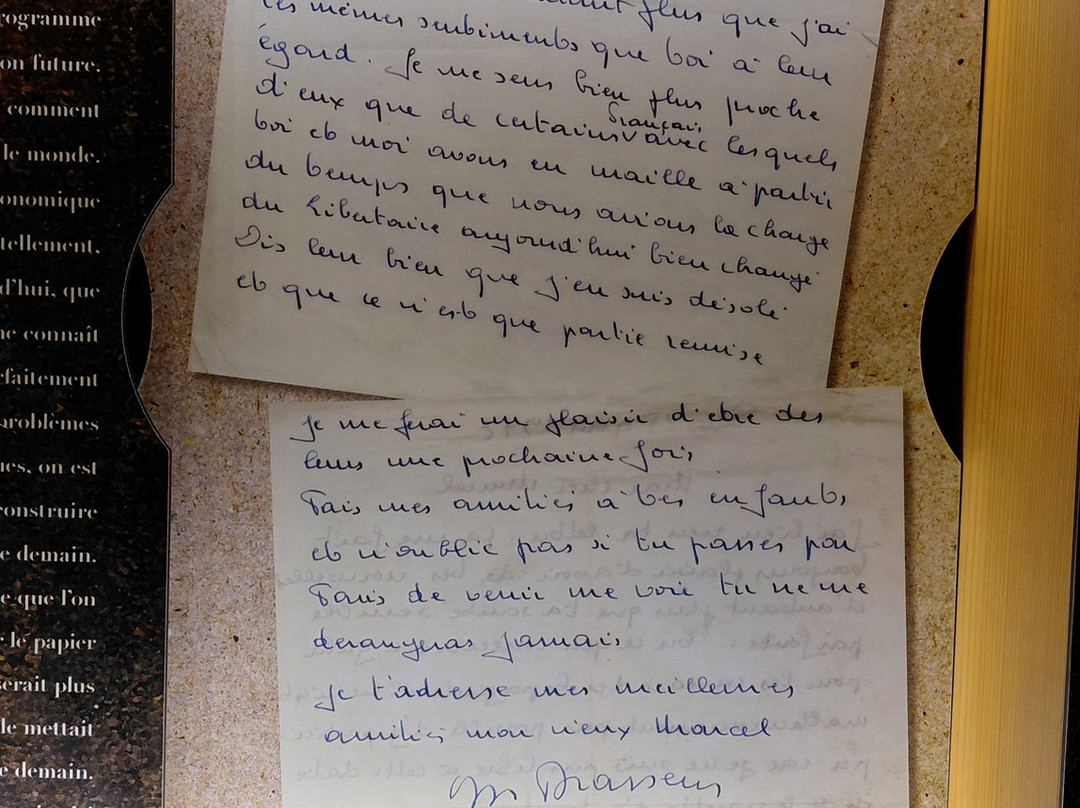 rogramme
on future.
comment
le monde.
onomique
tellement,
d'hui, que
ne connaît
rfaitement
problèmes
ues, on est
construire
e demain.
e que l'on
r le papier
serait plus
le mettait
e demain.
plus que j'ai
les mêmes sentiments que toi à leur
égard. Je me sens bien plus proche
d'eux que de certains français avec lesquels
toi et moi avons eu maille à partir
du temps que nous avions la charge
du Libertaire aujourd'hui bien changé
Dis leur bien que j'en suis désolé
et que ce n'est que partie remise
Je me ferai un plaisir d'etre des
leurs une prochaine fois,
Fais mes amitiés à tes enfants,
et n'oublie pas si tu passes par
Paris de venir me voir tu ne me
derangeras jamais
Je t'adresse mes meilleures
amitiés mon vieux Marcel
Brassens